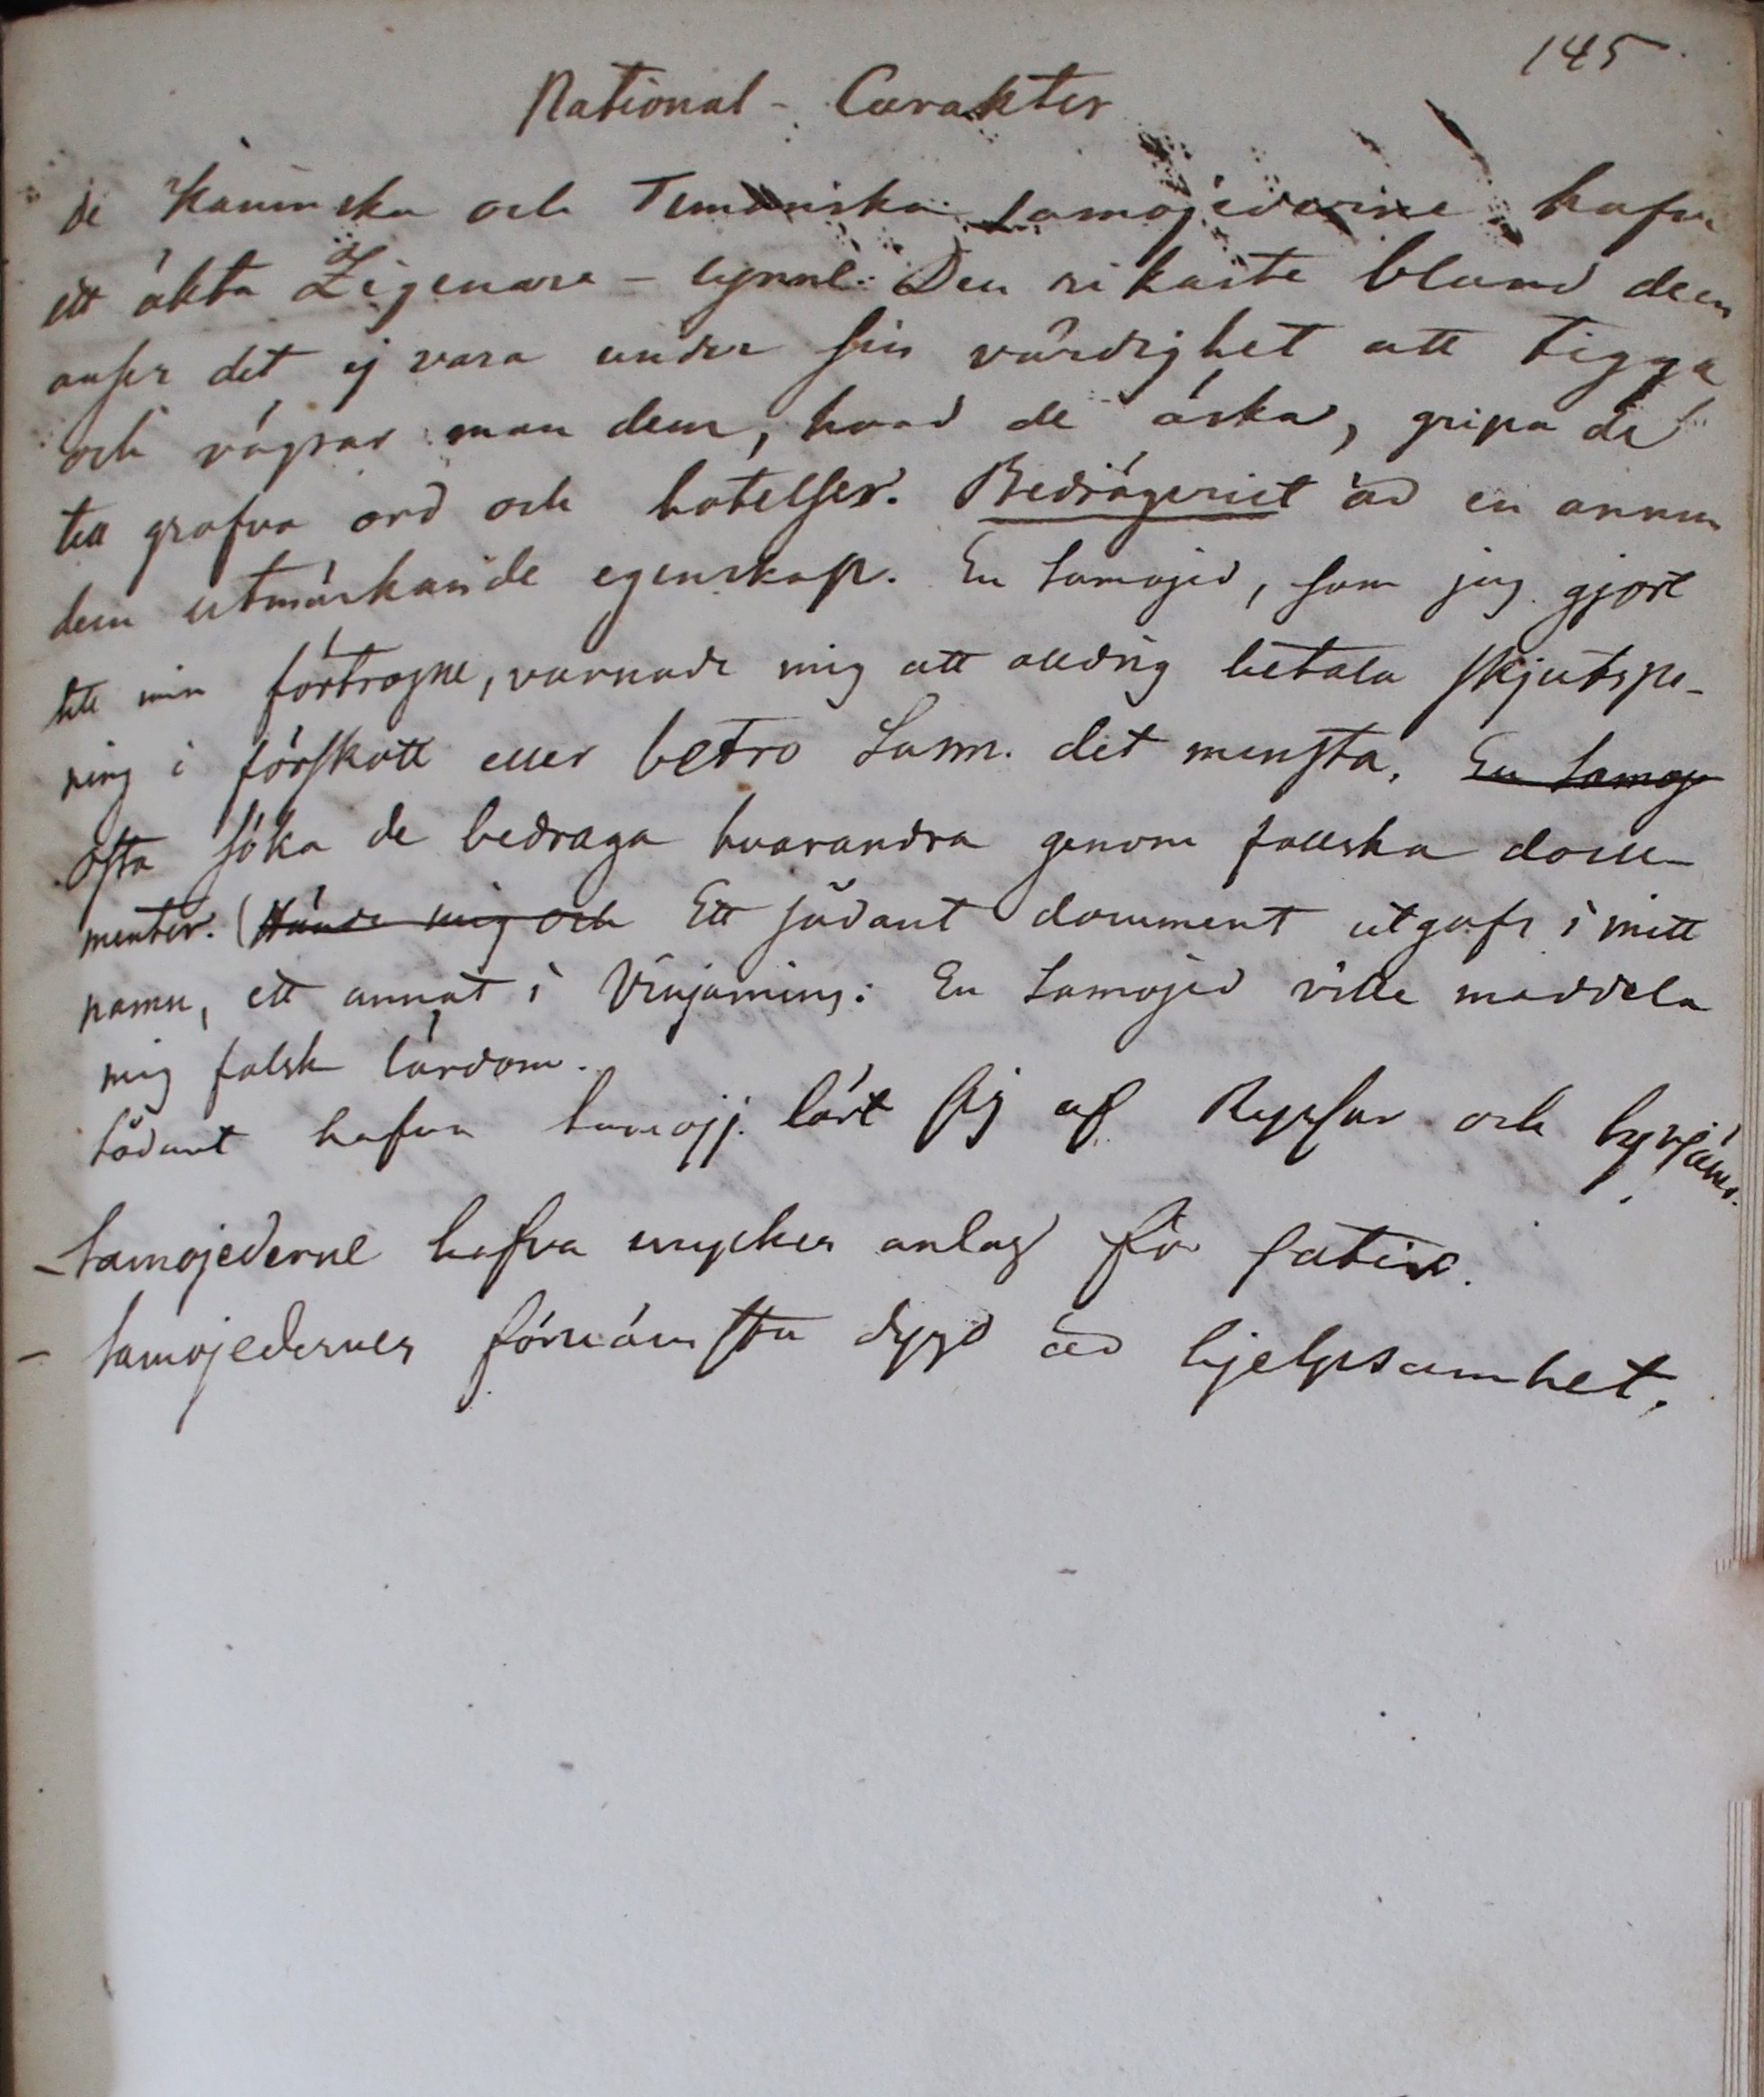 145
National-Carakter
de Kaninska och Timanska Samojederne hafva
ett äkta Zigenare-lynne. Den rikaste bland dem
anser det ej vara under sin värdighet att tigga
och vägrar man dem, hvad de äska, gripa de
till grofva ord och hotelser. Bedrägeriet är en annan
dem utmärkande egenskap. En Samojed, som jag gjort
till min förtrogne, varnade mig att alldrig betala skjutspe-
ning i förskott eller betro Sam. det minsta. En Samoj
ofta söka de bedraga hvarandra genom falska docu-
menter. (Hände mig och Ett sådant document utgafs i mitt
namn, ett annat i Vinjamins: En Samojed ville meddela
mig falsk lärdom.
Sådant hafva Samojj. lärt sig af Ryssar och
- Samojederne hafva mycken anlag för satir.
- Samojedernes förnämsta dygd är hjelpsamhet.